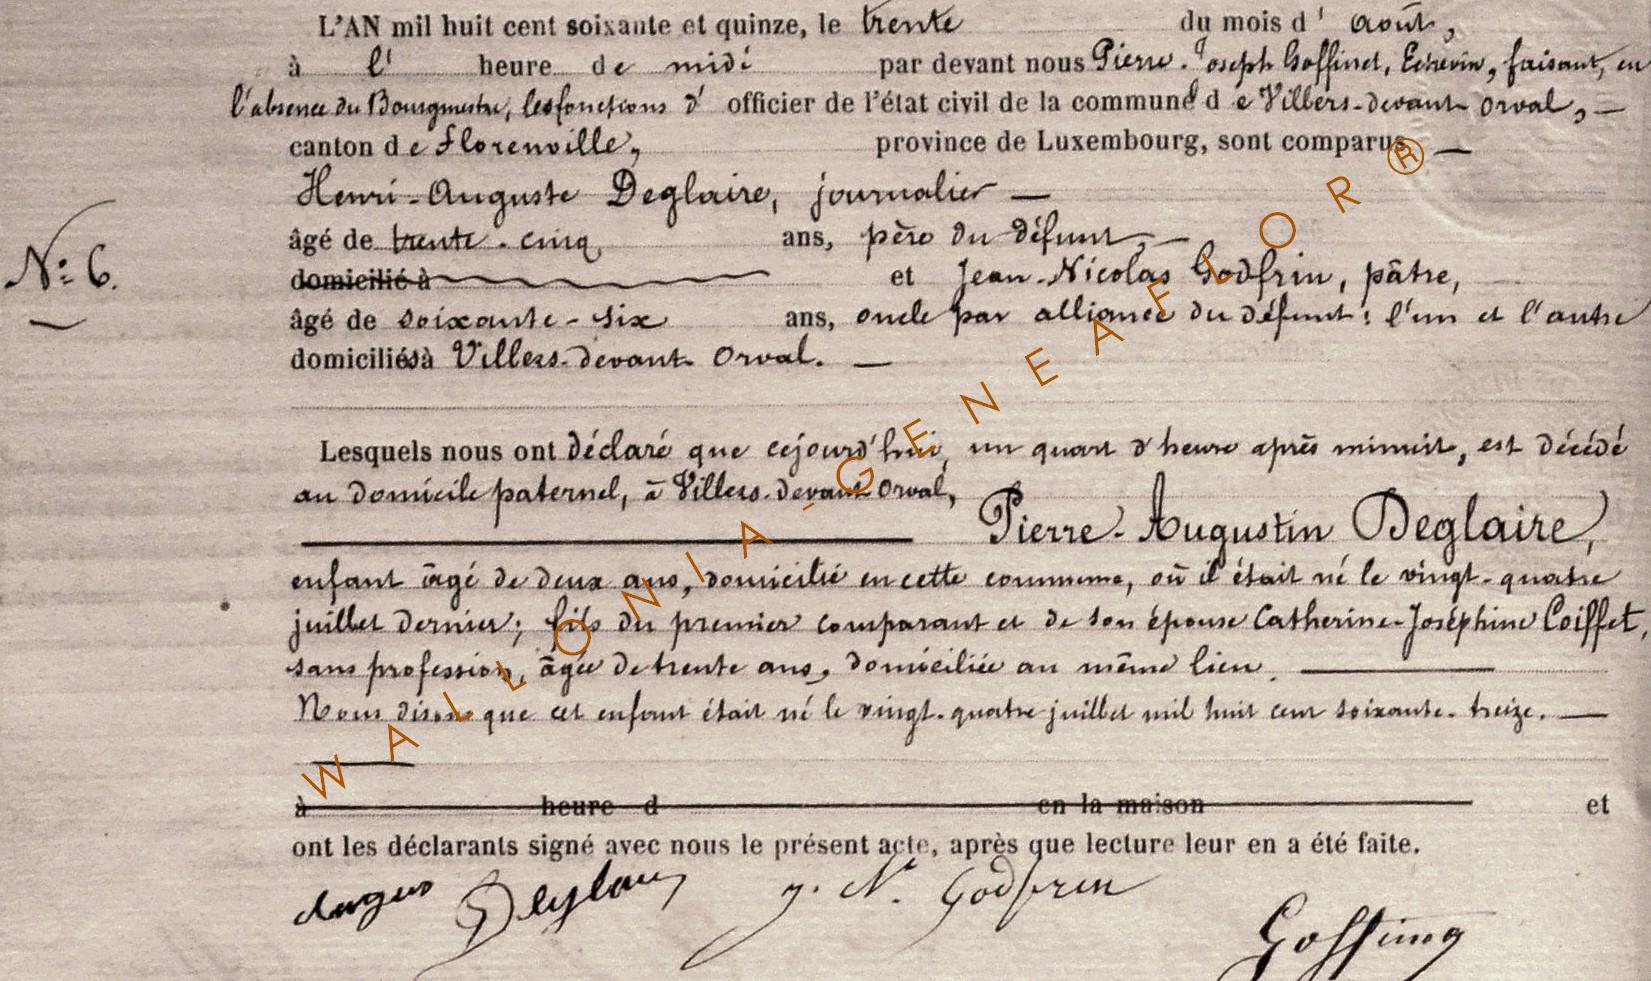 L'AN mil huit cent soixante et quinze, le trente du mois d' août,
à l' heure de midi par devant nous Pierre-Joseph Goffinet, Echevin, faisant, en
l'absence du Bourgmestre, les fonctions d' officier de l'état civil de la commune de Villers-devant-Orval, —
canton de Florenville, province de Luxembourg, sont comparus —
Henri-Auguste Deglaire, journalier —
âgé de trente-cinq ans, père du défunt, —
N° 6.
domicilié à et Jean-Nicolas Godfrin, pâtre,
âgé de soixante-six ans, oncle par alliance du défunt; l'un et l'autre
domiciliés à Villers-devant-Orval. —
Lesquels nous ont déclaré que cejourd'hui, un quart d'heure après minuit, est décédé
au domicile paternel, à Villers-devant-Orval,
Pierre-Augustin Deglaire,
enfant âgé de deux ans, domicilié en cette commune, où il était né le vingt-quatre
juillet dernier; fils du premier comparant et de son épouse Catherine-Joséphine Coiffet,
sans profession, âgée de trente ans, domiciliée au même lieu. —
Nous disons que cet enfant était né le vingt-quatre juillet mil huit cent soixante-treize. —
à heure d en la maison et
ont les déclarants signé avec nous le présent acte, après que lecture leur en a été faite.
Deglaire J. N. Godfrin
Goffinet
WALLONIA-GENEAFLOR®